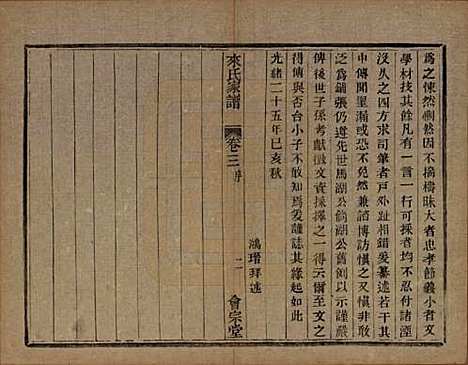 為之悚然惻然因不揣檮昧大者忠孝節義小者文
學材技其餘凡有一言一行可採者均不忍付諸湮
沒久之四方求司筆者戶外趾相錯爰纂述若干
中傳聞里漏或寡兼諮博訪慎之又慎非敢
泛為鋪張仍遵先世馬湖公倘湖公舊例以示謹嚴
俾後世子孫考獻徵文資採擇之一得云爾至文之
得傳與否台小子不敢知焉爰謹誌其緣起如此
光緒二十五年己亥秋
鴻瑨拜述
來氏家譜
卷三
二
會宗堂